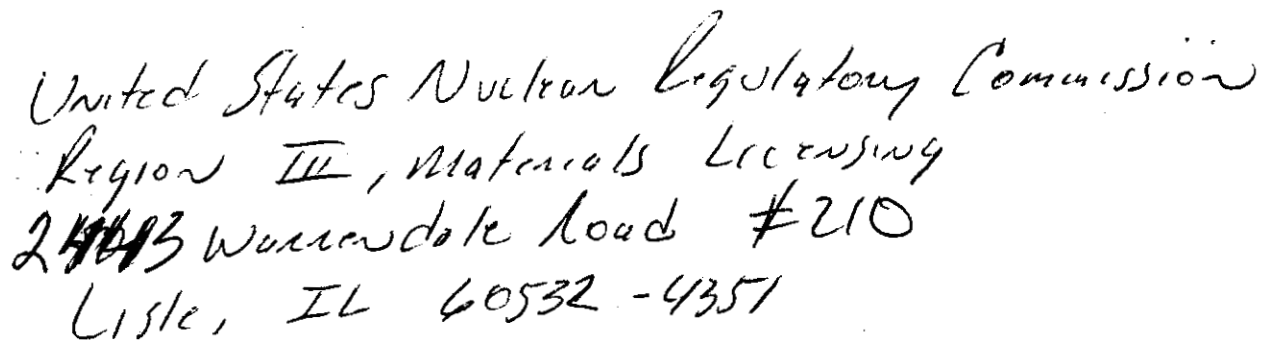 United States Nuclear Regulatory Commission
Region III, Materials Licensing
Warrendale Road #210
Lisle, IL 60532-4351